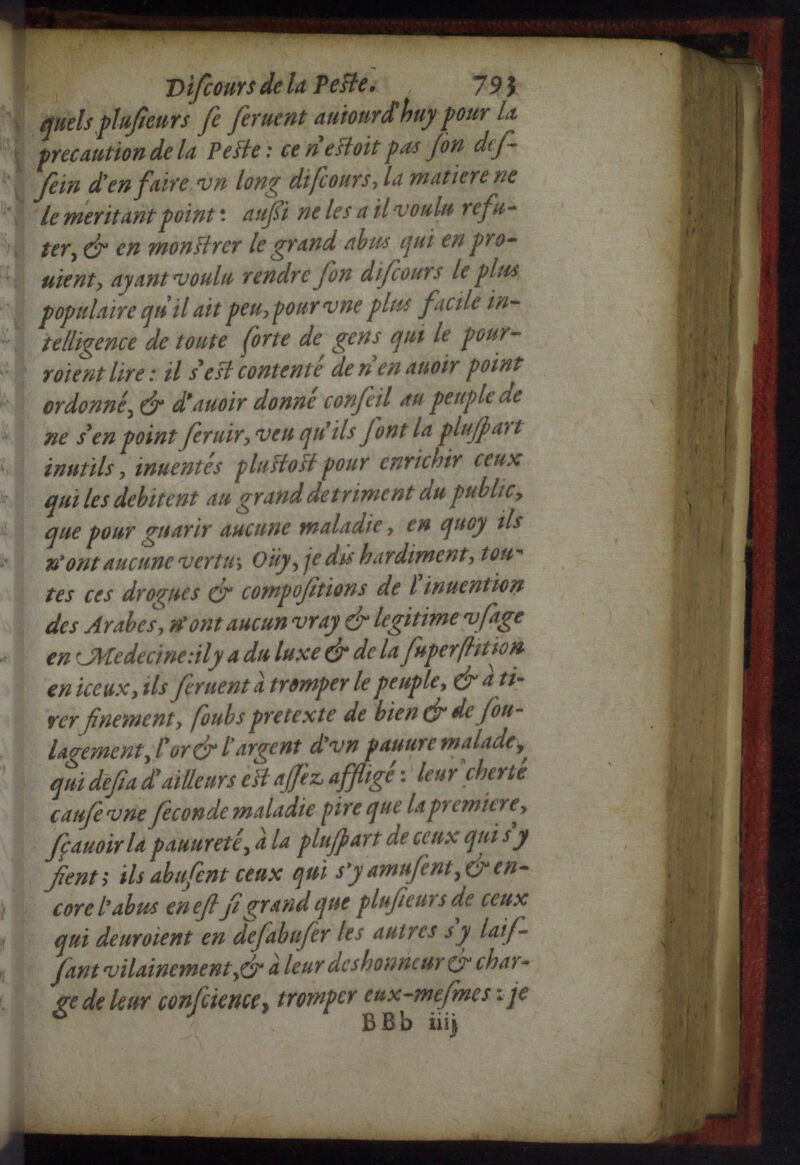 Discours de la Peste. 793
quels plusieurs se seruent auiourd'huy pour la
precaution de la Peste : ce n'estoit pas son des-
sein d'en faire vn long discours, la matiere ne
le meritant point : aussi ne les a il voulu refu-
ter, & en monstrer le grand abus qui en pro-
uient, ayant voulu rendre son discours le plus
populaire qu'il ait peu, pour vne plus facile in-
telligence de toute sorte de gens qui le pour-
roient lire : il s'est contenté de n'en auoir point
ordonné, & d'auoir donné conseil au peuple de
ne s'en point seruir, veu qu'ils sont la pluspart
inutils, inuentés plustost pour enrichir ceux
qui les debitent au grand detriment du public,
que pour guarir aucune maladie, en quoy ils
n'ont aucune vertu; Oüy, je dis hardiment, tou-
tes ces drogues & compositions de l'inuention
des Arabes, n'ont aucun vray & legitime vsage
en Medecine: il y a du luxe & de la superstition
en iceux, ils seruent à tromper le peuple, & à ti-
rer finement, soubs pretexte de bien & de sou-
lagement, l'or & l'argent d'vn pauure malade,
qui desia d'ailleurs est assez affligé : leur cherté
cause vne seconde maladie pire que la premiere,
sçauoir la pauureté, à la pluspart de ceux qui s'y
fient; ils abusent ceux qui s'y amusent, & en-
core l'abus en est si grand que plusieurs de ceux
qui deuroient en desabuser les autres s'y lais-
sant vilainement, & à leur deshonneur & char-
ge de leur conscience, tromper eux-mesmes : je
BBb iiij